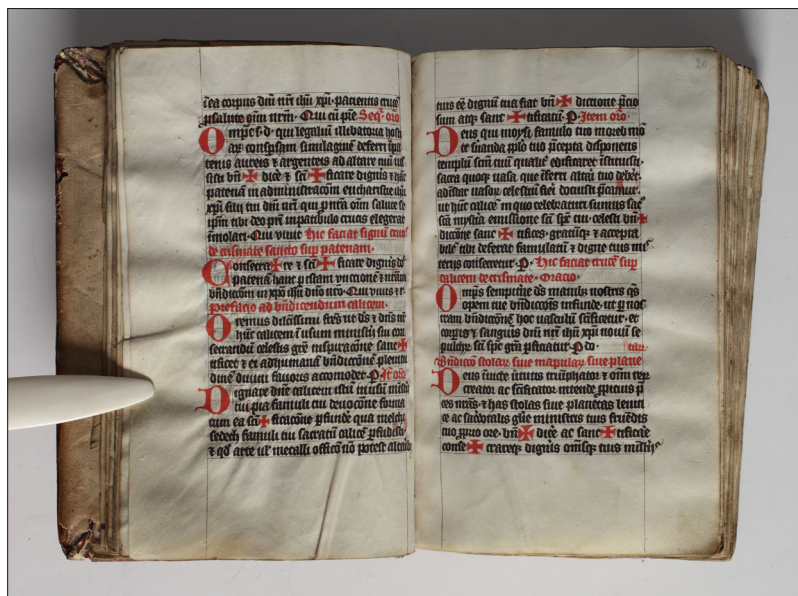 ī ea corpus dn̄i nr̄i ih̄u xp̄i · pacientis cruce
p salute om̄n nr̄m · Qui cū pr̄e Seq̄ orō
Omp̄c s · d · qui legaliū
consp̄sam similagine deferri
aureis & argenteis ad altare
bn̄ ✠ dice & sc̄i ✠ ficare digneris & hāc
patenā in administracōm eucharistie
xp̄i filii tui dn̄i nr̄i qui p nr̄a om̄ salute se
ip̄m tibi deo pr̄i in patibulo crucis elegerat
imolari · Qui viuit Hic faciat signū crucis
de crismate sancto sup patenam ·
Consecra ✠ re & sc̄i ✠ ficare digneris
patenā hanc p istam vnctionē & nr̄am
bn̄dicōm in xp̄o ih̄u dn̄o nr̄o · Qui viuis & r̄
Prefacio ad bn̄dicendum calicem ·
Oremus dilc̄issimi fr̄es ut d̄s & dn̄s nr̄
hūc calicem ī usum ministerii sui con
secrandū celestis gr̄e inspiracōne sanc ✠
tificet & ei ad humanā bn̄dicōnē plenitu
dinē diuini fauoris accomodet · P It̄ orō
Dignare dn̄e calicem istū in usū
tui pia famuli tui deuocōne forma
tum ea sc̄i ✠ ficacōne p̄funde qua melchi
sedech famuli tui sacratū calicē p̄fudisti ·
& qd̄ arte uel metalli offic̄o nō potest altarib
20
tuis eē dignū tua fiat bn̄ ✠ dictione p̄cio
sum atq̄ sanc ✠ tificatū · P · Item orō ·
Deus qui moysi famulo tuo
pp̄lo tuo p̄cepta disponens
templū sc̄m tuū qualit̄ edificaret
sacra quoq̄ uasa que īferri altari tuo deberēt
ad īstar uasor̄ celestiū fieri docuisti p̄camur ·
ut hūc calicē in quo celebraturi sumus sac̄
sc̄i sp̄c tui · celesti bn̄ ✠
dicōne sanc ✠ tifices · gratūq̄ & acceptabi
bile tibi deferat famulatū & digne tuis mis
terijs consecretur · P · Hic faciat crucē sup
calicem de crismate · Oracio ·
Omp̄s sempit̄ne d̄s manib; nostris q̄s
opem tue bn̄dicōnis infunde · ut p nos
tram bn̄dicōnē hoc vasculū sc̄ificetur · et
corpus & sanguis dn̄i nr̄i ih̄u xp̄i nouū se
pulchr̄ sc̄i sp̄c gr̄a p̄ficiatur · P do ·
Bn̄dicō stolar̄ siue mapular̄ siue plane tar̄ ·
Deus īuicte uirtutis triūphator & om̄ rer̄
creator ac sc̄ificator intende ppicius p̄
ces nr̄as · & has stolas siue planetas leuiti
ce ac sacerdotalis glīe ministris tuis fruēdis
tuo pprio ore · bn̄ ✠ dice ac sanc ✠ tificare
conse ✠ crareq̄ digneris om̄sq̄ tuis